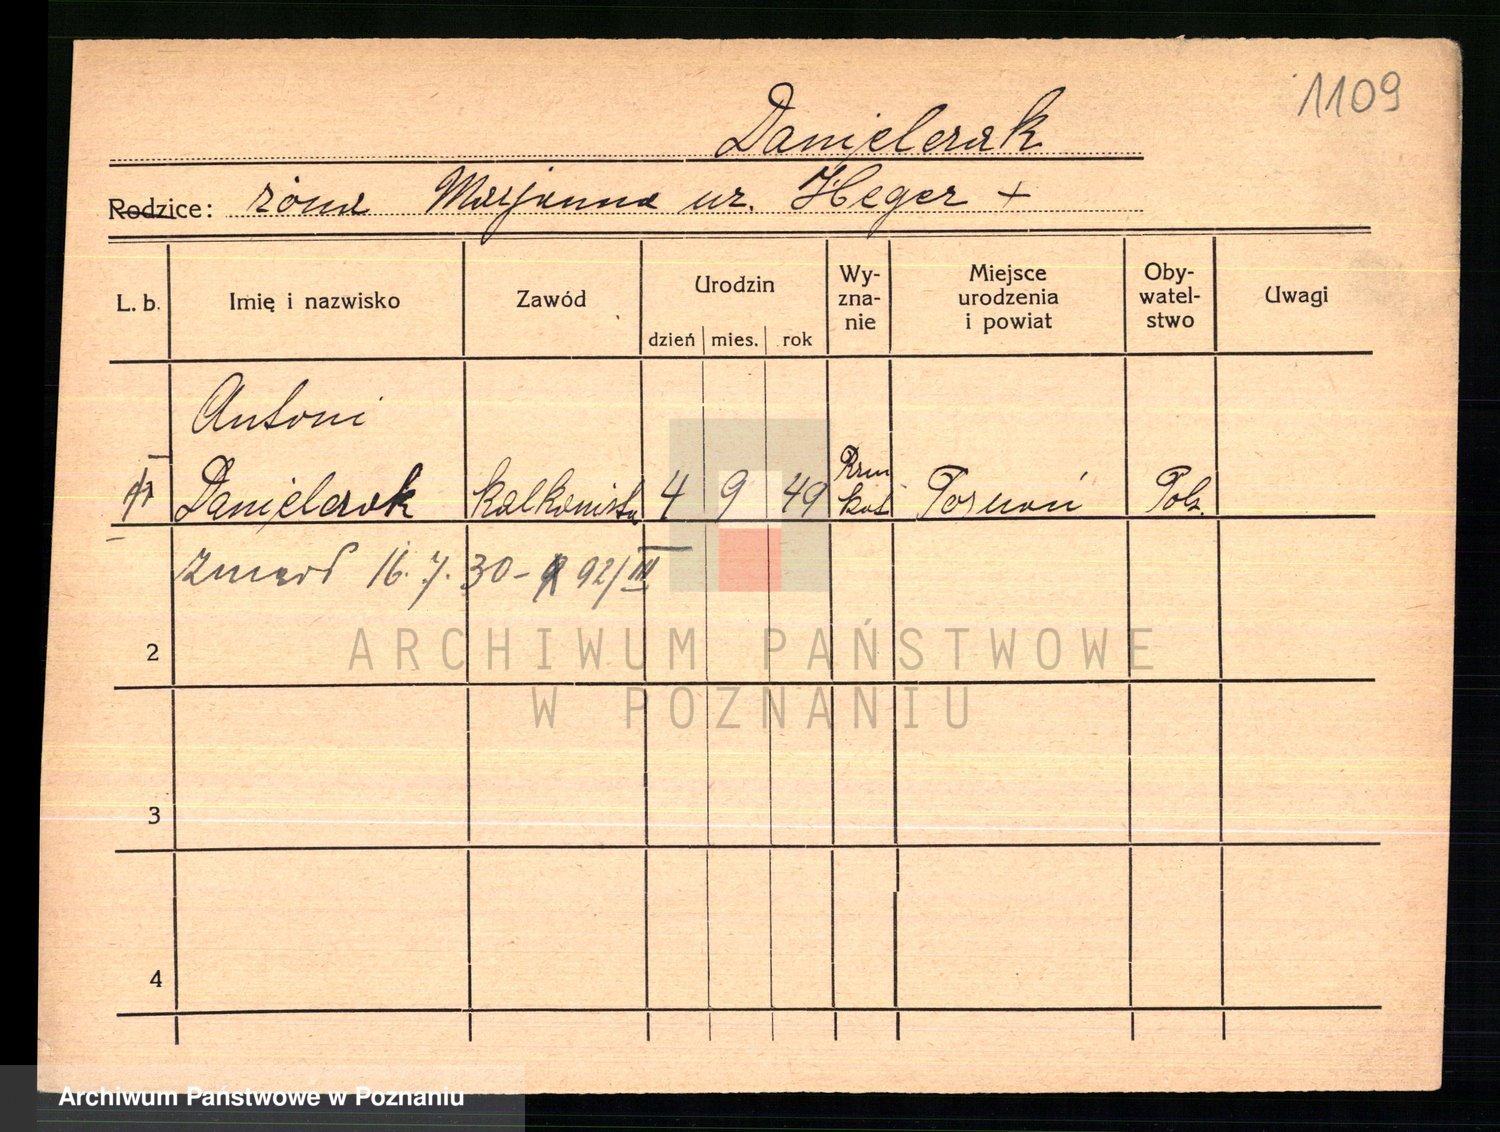 1109
Danielczak
Rodzice: żona Marjanna ur. Heger +
L. b. Imię i nazwisko Zawód Urodzin dzień mies. rok Wy-
zna-
nie Miejsce
urodzenia
i powiat Oby-
watel-
stwo Uwagi
Antoni
Danielczak kalkonista 4 9 49 Rzm kat Poznań Polz.
zmarł 16. 7. 30 - 92/III
2
3
4
ARCHIWUM PAŃSTWOWE
W POZNANIU
Archiwum Państwowe w Poznaniu